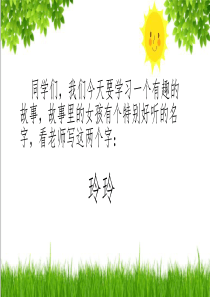 同学们，我们今天要学习一个有趣的
故事，故事里的女孩有个特别好听的名
字，看老师写这两个字：
玲玲